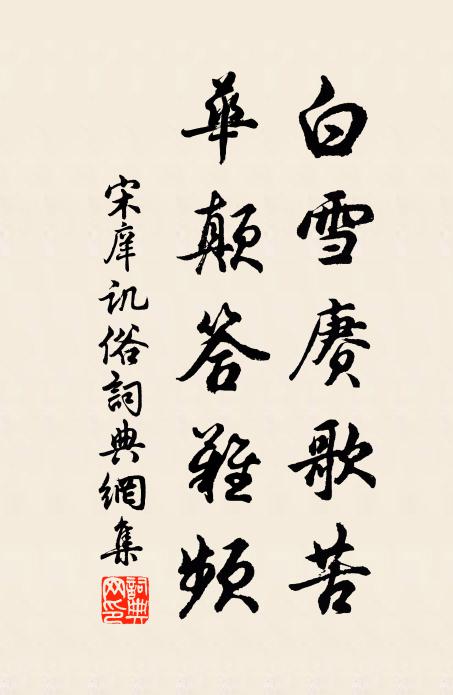 白雪赓歌苦
華颠答難频
宋庠訊俗詞典網集
詞典网印